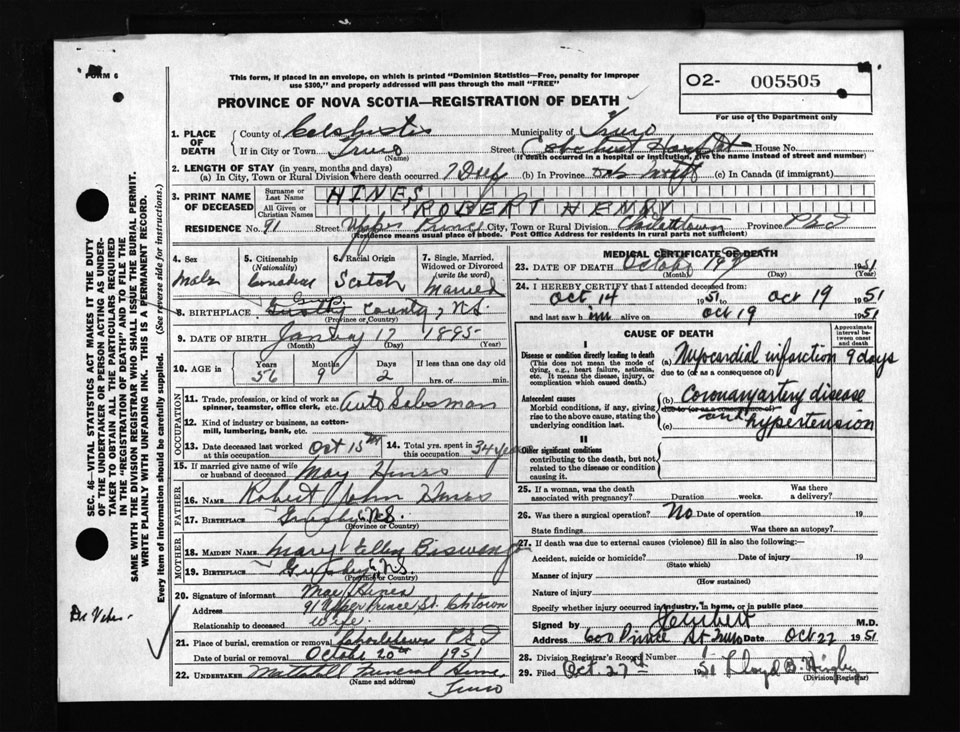 FORM 6
This form, if placed in an envelope, on which is printed "Dominion Statistics—Free, penalty for improper
use $300," and properly addressed will pass through the mail "FREE"
O2- 005505
For use of the Department only
PROVINCE OF NOVA SCOTIA—REGISTRATION OF DEATH
1. PLACE OF DEATH
County of Colchester Municipality of Truro
If in City or Town Truro (Name) Street House No.
(If death occurred in a hospital or institution, give the name instead of street and number)
2. LENGTH OF STAY (in years, months and days)
(a) In City, Town or Rural Division where death occurred 7 Days (b) In Province (c) In Canada (if immigrant)
3. PRINT NAME OF DECEASED
Surname or Last Name HINES
All Given or Christian Names ROBERT HENRY
RESIDENCE No. 91 Street Upper Prince City, Town or Rural Division Charlottetown Province P E I
(Residence means usual place of abode. Post Office Address for residents in rural parts not sufficient)
4. Sex Male
5. Citizenship (Nationality) Canadian
6. Racial Origin Scotch
7. Single, Married, Widowed or Divorced (write the word) Married
8. BIRTHPLACE County, N.S.
(Province or Country)
9. DATE OF BIRTH 17 1895
(Month) (Day) (Year)
10. AGE in Years 56 Months 9 Days 2 If less than one day old hrs. or min.
OCCUPATION
11. Trade, profession, or kind of work as spinner, teamster, office clerk, etc. Auto Salesman
12. Kind of industry or business, as cotton-mill, lumbering, bank, etc.
13. Date deceased last worked at this occupation Oct 15th 14. Total yrs. spent in this occupation 34 years
15. If married give name of wife or husband of deceased May Hines
FATHER
16. NAME Robert John Hines
17. BIRTHPLACE N.S.
(Province or Country)
MOTHER
18. MAIDEN NAME Mary Ellen
19. BIRTHPLACE N.S.
(Province or Country)
20. Signature of informant May Hines
Address 91 Upper Prince St. Chtown
Relationship to deceased Wife
21. Place of burial, cremation or removal P E I
Date of burial or removal October 20th 1951
22. UNDERTAKER Mattatall Funeral Home,
(Name and address)
Truro
MEDICAL CERTIFICATE OF DEATH
23. DATE OF DEATH October 19 1951
(Month) (Day)
24. I HEREBY CERTIFY that I attended deceased from:
Oct 14 1951 to Oct 19 1951
and last saw him alive on Oct 19 1951
CAUSE OF DEATH
Approximate interval between onset and death
I
Disease or condition directly leading to death
(This does not mean the mode of dying, e.g., heart failure, asthenia, etc. It means the disease, injury, or complication which caused death.)
(a) Myocardial infarction 9 days
due to (or as a consequence of)
Antecedent causes
Morbid conditions, if any, giving rise to the above cause, stating the underlying condition last.
(b) Coronary artery disease
due to (or as a consequence of)
and
(c) hypertension
II
Other significant conditions
contributing to the death, but not related to the disease or condition causing it.
25. If a woman, was the death associated with pregnancy? Duration weeks. Was there a delivery?
26. Was there a surgical operation? No Date of operation 19
State findings Was there an autopsy?
27. If death was due to external causes (violence) fill in also the following:—
Accident, suicide or homicide? Date of injury 19
(State which)
Manner of injury
(How sustained)
Nature of injury
Specify whether injury occurred in industry, in home, or in public place
Signed by M.D.
Address 600 Prince St Truro Date Oct 22 1951
28. Division Registrar's Record Number
29. Filed Oct. 27th 1951 Lloyd B.
(Division Registrar)
SEC. 46—VITAL STATISTICS ACT MAKES IT THE DUTY
OF THE UNDERTAKER OR PERSON ACTING AS UNDER-
TAKER TO OBTAIN ALL THE PARTICULARS REQUIRED
IN THE "REGISTRATION OF DEATH" AND TO FILE THE
SAME WITH THE DIVISION REGISTRAR WHO SHALL ISSUE THE BURIAL PERMIT.
WRITE PLAINLY WITH UNFADING INK. THIS IS A PERMANENT RECORD.
Every item of information should be carefully supplied. (See reverse side for instructions.)